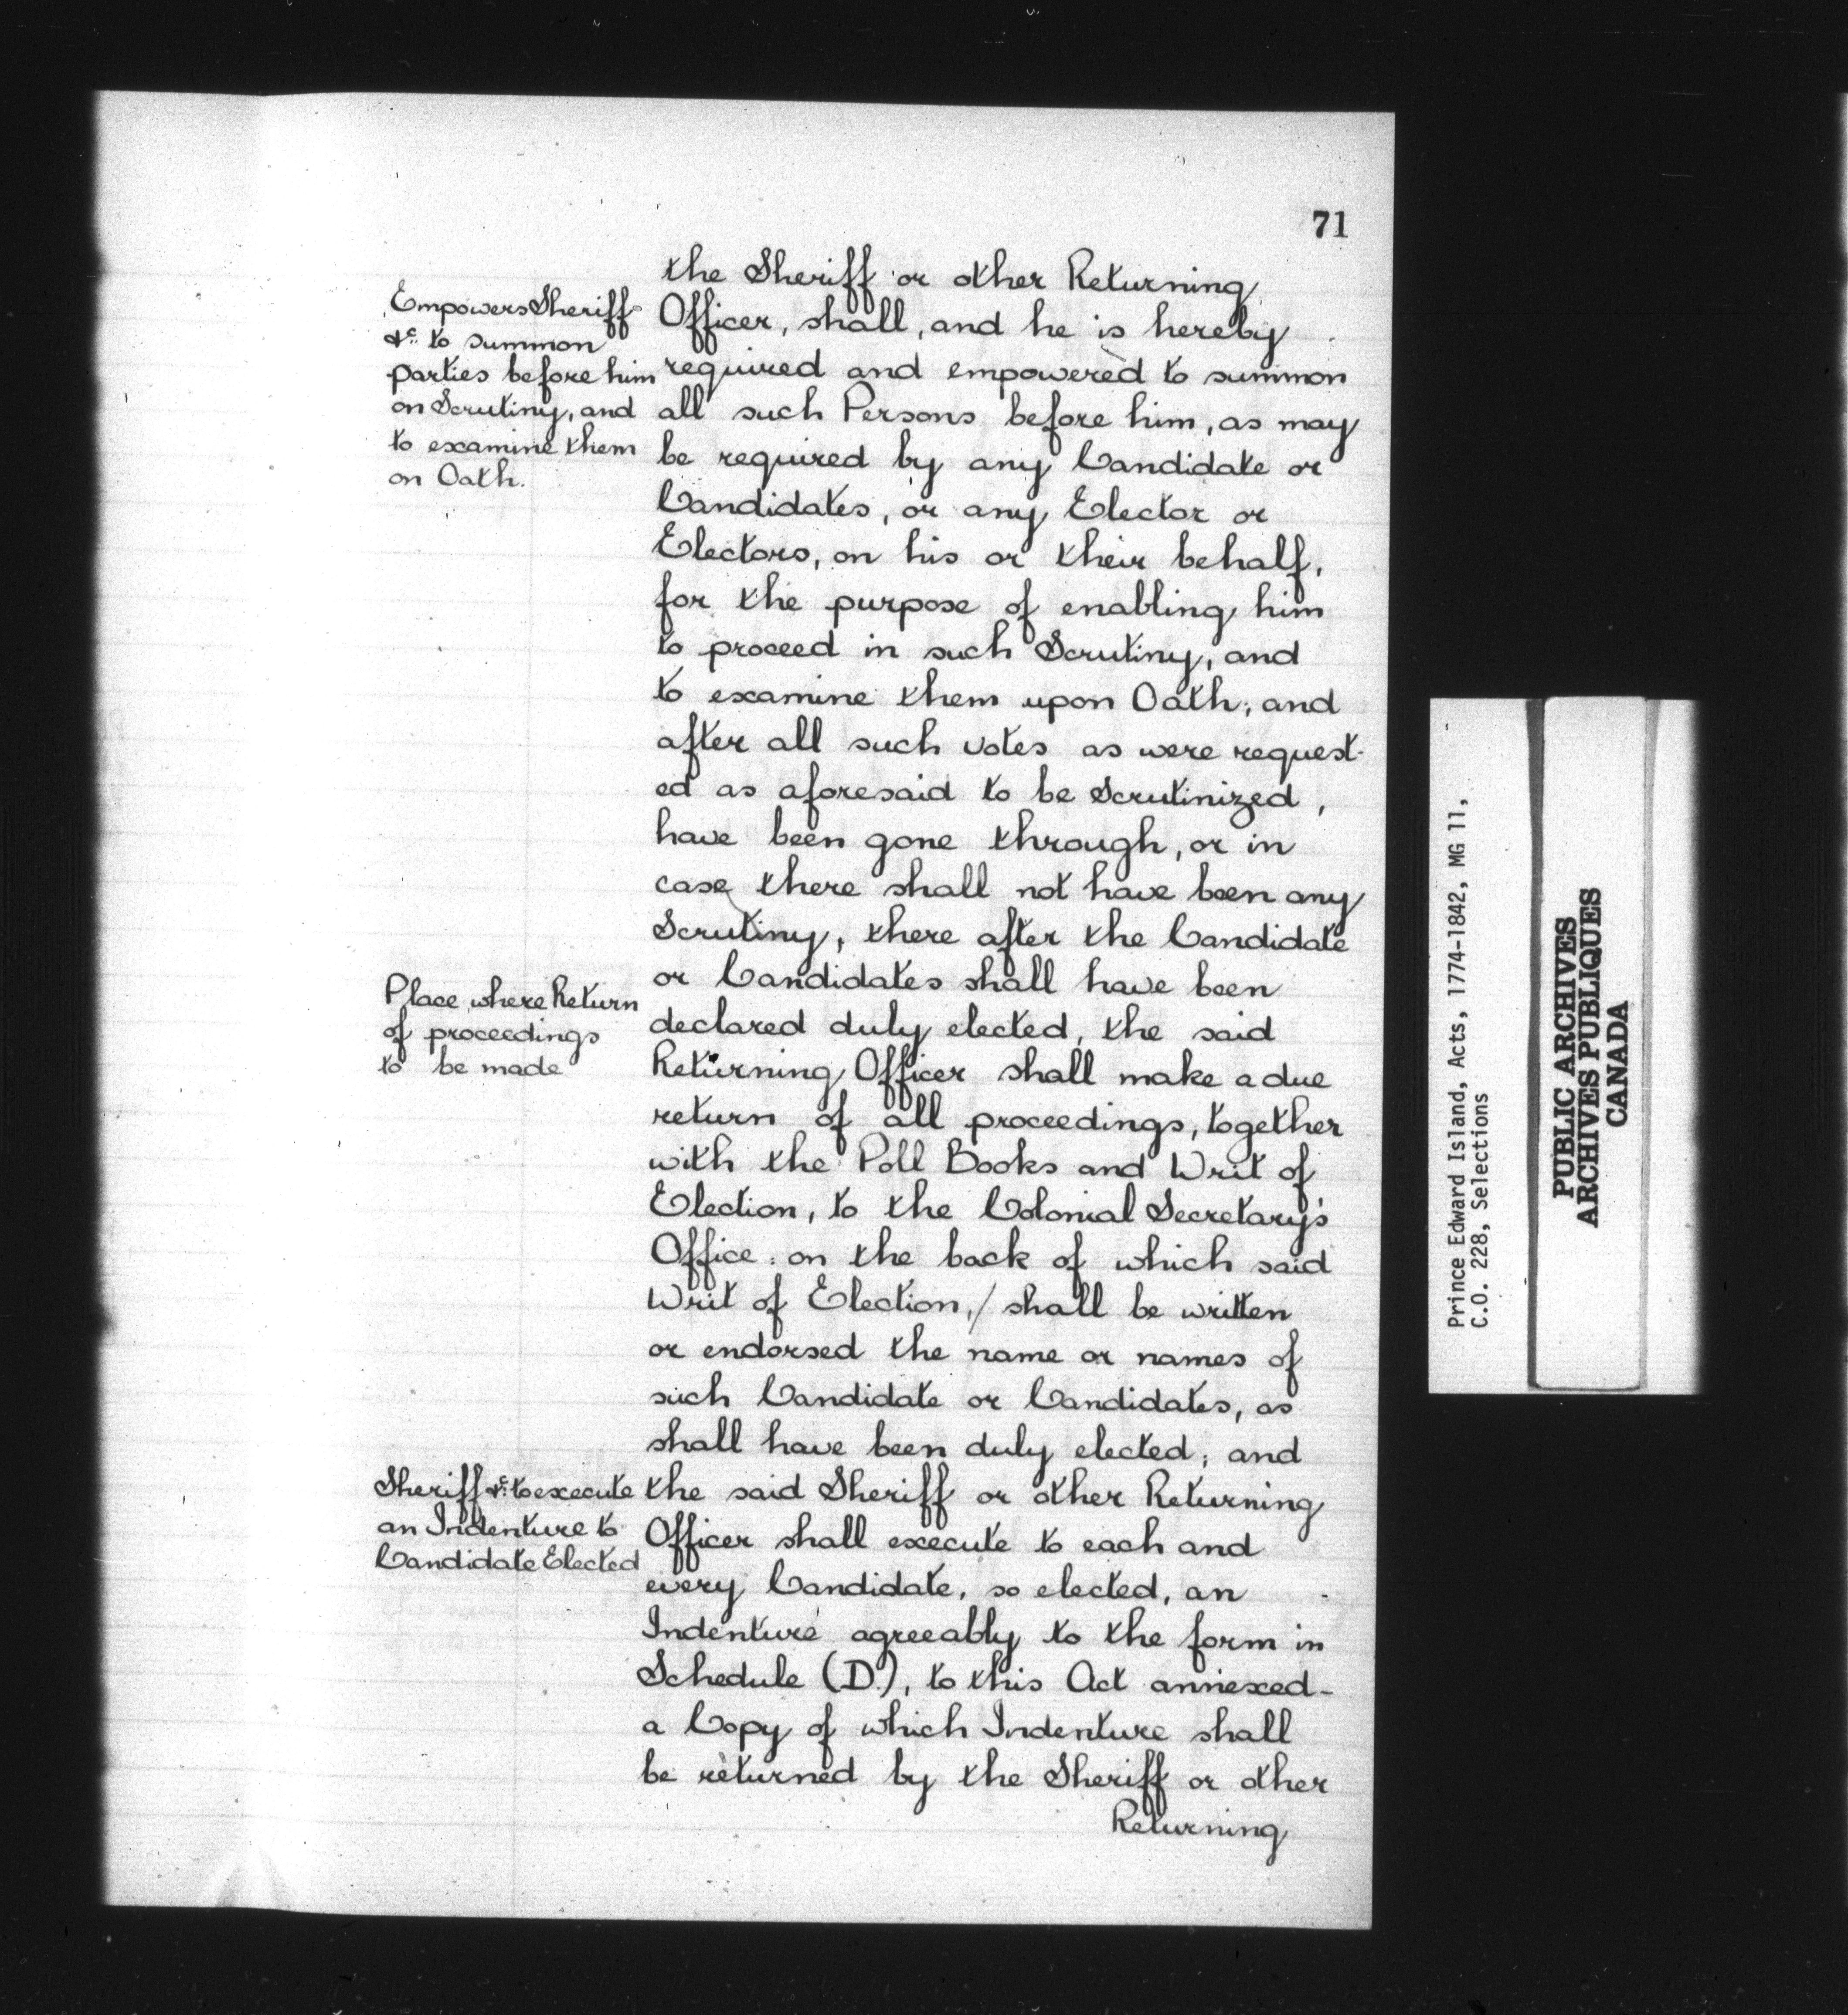 71
Empowers Sheriff
&c. to summon
parties before him
on Scrutiny, and
to examine them
on Oath.
the Sheriff or other Returning
Officer, shall, and he is hereby
required and empowered to summon
all such Persons before him, as may
be required by any Candidate or
Candidates, or any Elector or
Electors, on his or their behalf,
for the purpose of enabling him
to proceed in such Scrutiny, and
to examine them upon Oath; and
after all such votes as were request-
ed as aforesaid to be Scrutinized,
have been gone through, or in
case there shall not have been any
Scrutiny, there after the Candidate
or Candidates shall have been
Place where Return
of proceedings
to be made
declared duly elected, the said
Returning Officer shall make a due
return of all proceedings, together
with the Poll Books and Writ of
Election, to the Colonial Secretary's
Office: on the back of which said
Writ of Election,/ shall be written
or endorsed the name or names of
such Candidate or Candidates, as
shall have been duly elected; and
Sheriff &c: to execute
an Indenture to
Candidate Elected
the said Sheriff or other Returning
Officer shall execute to each and
every Candidate, so elected, an
Indenture agreeably to the form in
Schedule (D.), to this Act annexed-
a Copy of which Indenture shall
be returned by the Sheriff or other
Returning
Prince Edward Island, Acts, 1774-1842, MG 11,
C.O. 228, Selections
PUBLIC ARCHIVES
ARCHIVES PUBLIQUES
CANADA